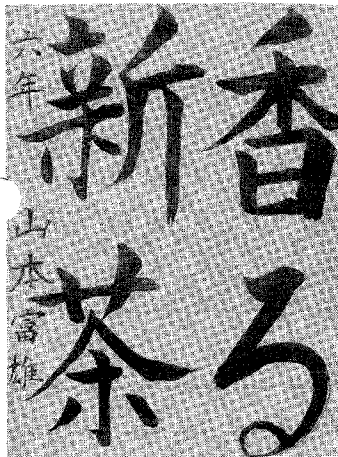 香る
新茶
六年 山本富雄